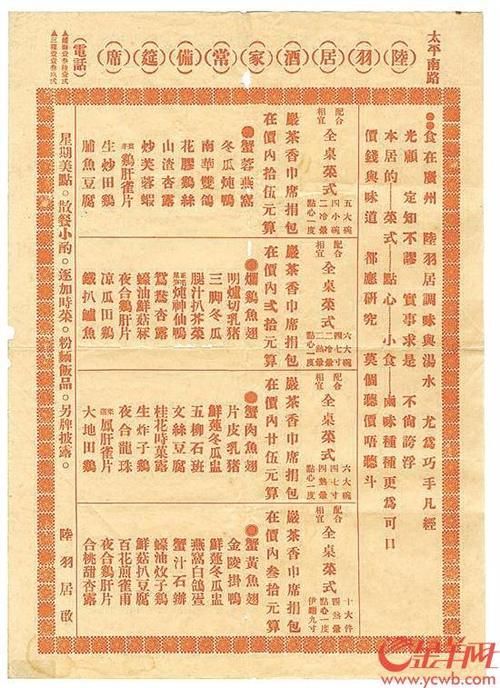 太平南路
陸羽居酒家常備筵席
(電話)
●食在廣州 陸羽居調味與湯水 尤為巧手凡經
光顧 定知不謬 實事求是 不尚誇浮
本居的—菜式—點心—小食—鹵味種種更為可口
價錢與味道 都應研究 莫個聽價唔聽斗
配合相宜
全桌菜式
五大碗
四小碗
二冷葷
點心一度
嚴茶香巾席捐包
在價內拾伍元算
●蟹蓉燕窩
冬瓜燉鴨
南華雙鴿
花膠鷄絲
山渣杏露
炒芙蓉蝦
鷄肝雀片
生炒田鷄
脯魚豆腐
配合相宜
全桌菜式
六大碗
四七寸
二冷葷
二熱葷
點心一度
嚴茶香巾席捐包
在價內弍拾元算
●燜鷄魚翅
明爐切乳豬
三脚冬瓜
腿汁扒芥菜
燉神仙鴨
鴛鴦杏露
蠔油鮮菇秝
夜合鷄肝片
凉瓜田鷄
鐵扒鱸魚
配合相宜
全桌菜式
六大碗
四七寸
四熱葷
點心一度
嚴茶香巾席捐包
在價內廿伍元算
●蟹肉魚翅
片皮乳猪
鮮蓮冬瓜盅
五柳石班
文絲豆腐
桂花時菓露
生炸子鷄
夜合龍珠
鳳肝雀片
大地田鷄
配合相宜
全桌菜式
十大件
四熱葷
點心一度
伊麵九寸
嚴茶香巾席捐包
在價內叁拾元算
●蟹黃魚翅
金陵掛鴨
鮮蓮冬瓜盅
燕窩白鴿蛋
蟹汁石班
蠔油炆子鷄
鮮菇扒豆腐
百花煎雀甫
夜合鷄肝片
合桃甜杏露
星期美點。散餐小酌。逐加時菜。粉麵飯品。另牌披露。
陸羽居啟
金羊网
www.ycwb.com